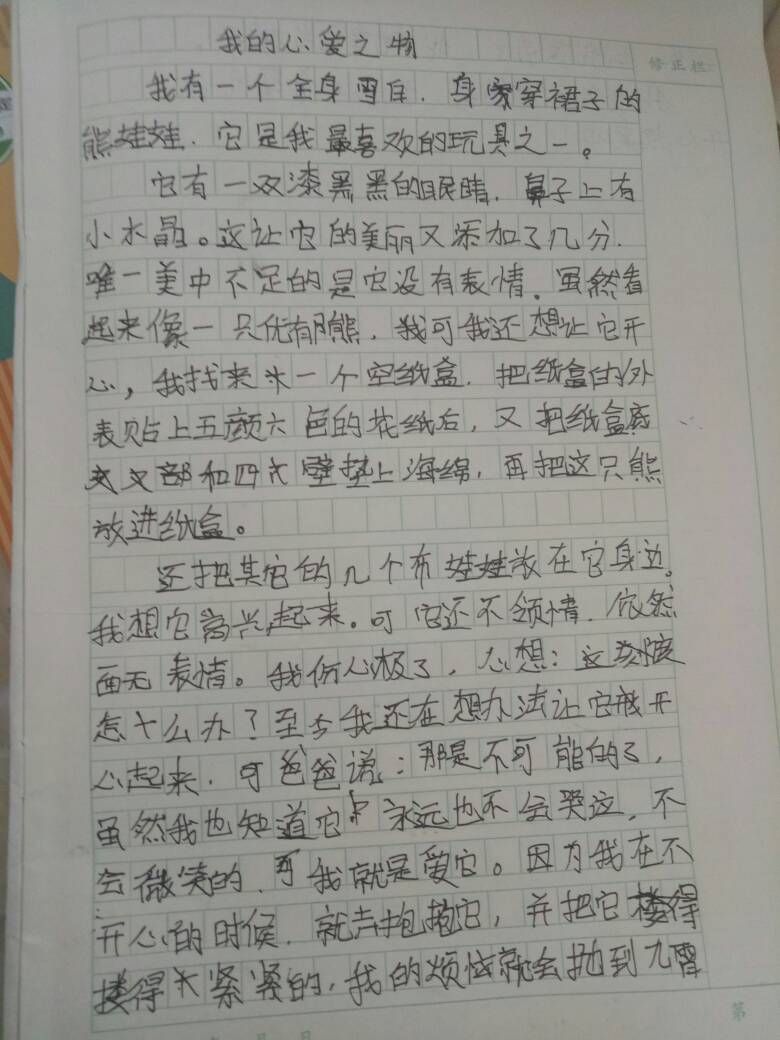 我的心爱之物
修正栏
我有一个全身雪白，身穿裙子的
熊娃娃，它是我最喜欢的玩具之一。
它有一双漆黑黑的眼睛，鼻子上有
小水晶。这让它的美丽又添加了几分，
唯一美中不足的是它没有表情。虽然看
起来像一只优郁熊，可我还想让它开
心，我找来一个空纸盒，把纸盒的外
表贴上五颜六色的花纸后，又把纸盒底
部和四壁垫上海绵，再把这只熊
放进纸盒。
还把其它的几个布娃娃放在它身边，
我想它高兴起来。可它还不领情，依然
面无表情。我伤心极了，心想：这该
怎么办？至今我还在想办法让它开
心起来，可爸爸说：那是不可能的了，
虽然我也知道它永远也不会哭泣，不
会微笑的，可我就是爱它。因为我在不
开心的时候，就去抱抱它，并把它
搂得紧紧的，我的烦恼就会抛到九霄
第